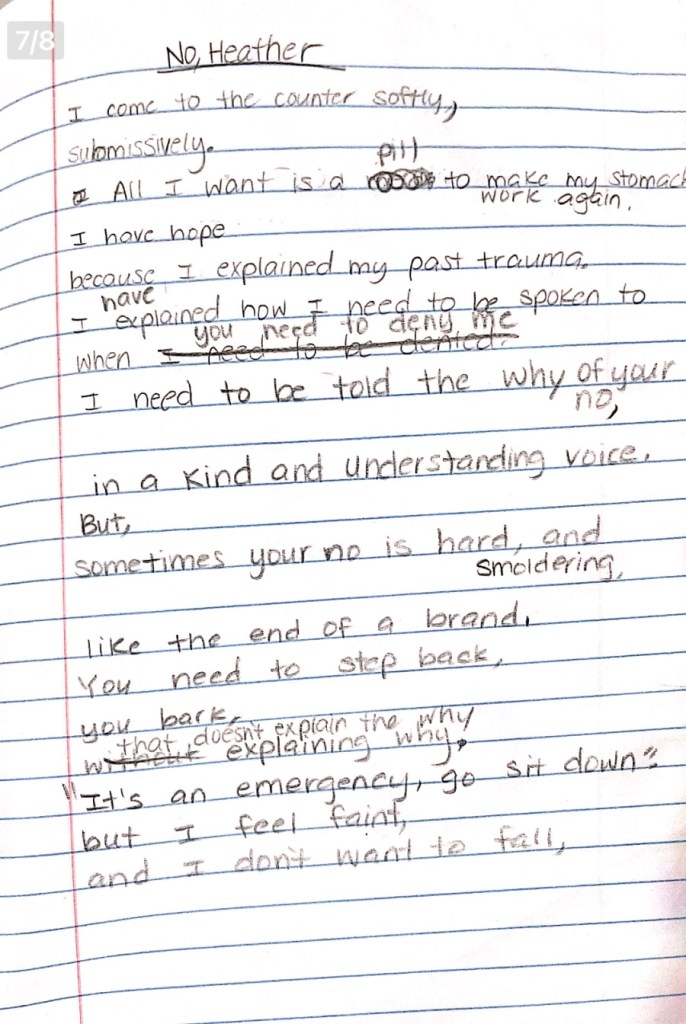 7/8
No, Heather
I come to the counter softly,
submissively.
pill
All I want is a to make my stomach
work again.
I have hope
because I explained my past trauma.
have
I explained how I need to be spoken to
you need to deny me
when I need to be denied.
I need to be told the why of your
no,
in a kind and understanding voice.
But,
sometimes your no is hard, and
smoldering,
like the end of a brand.
You need to step back,
you bark,
that doesn't explain the why
without explaining why.
"It's an emergency, go sit down"
but I feel faint,
and I don't want to fall,